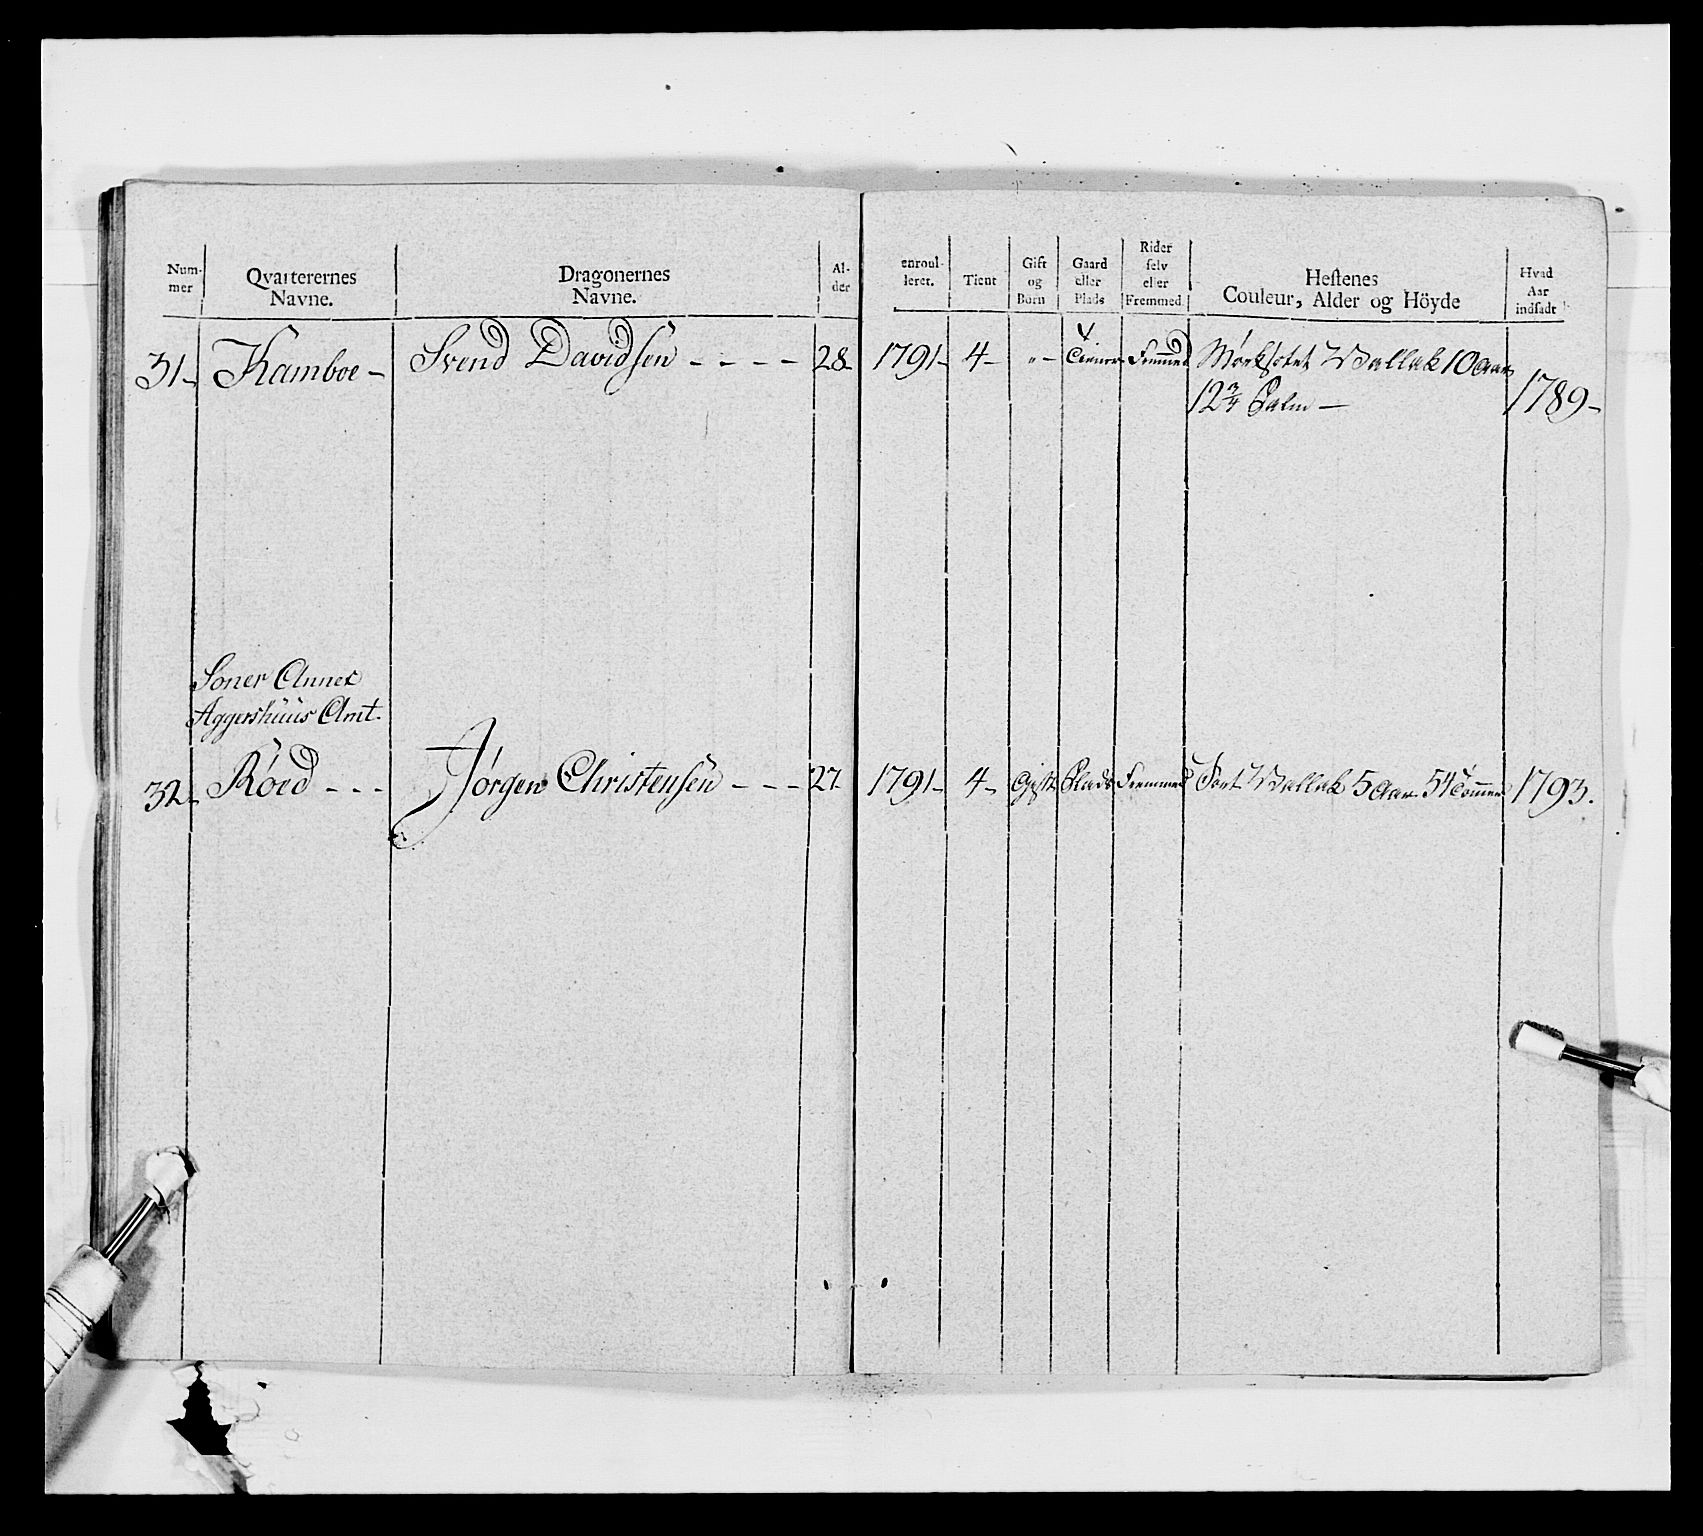 Num-
mer
Qvarterernes
Navne.
Dragonernes
Navne.
Al-
der
enroul-
leret.
Tient
Gift
og
Börn
Gaard
eller
Plads
Rider
selv
eller
Fremmed.
Hestenes
Couleur, Alder og Höyde
Hvad
Aar
indsadt
31- Kamboe- Svend Davidsen - - - - 28- 1791- 4- "- Tiener- Fremmed Mørksotet Wallak 10 Aar
12 3/4 Palm - 1789-
Soner Annex
Aggershuus Amt.
32- Röed - - - Jörgen Christensen - - - 27- 1791- 4- Gift Plads Fremmed Sort Wallak 5 Aar 54 Tommer 1793.